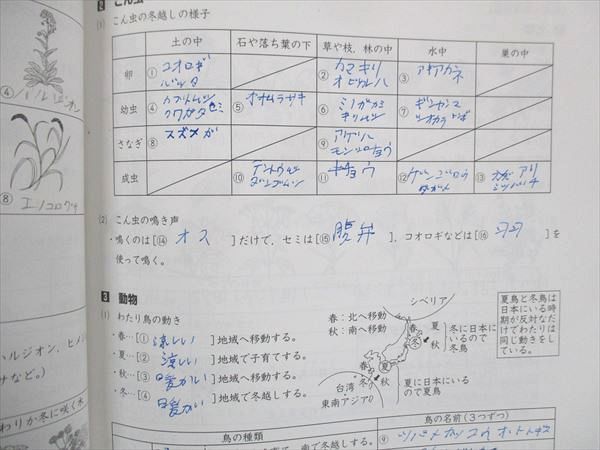 2 こん虫
(1) こん虫の冬越しの様子
土の中 石や落ち葉の下 草や枝, 林の中 水中 巣の中
卵 ① コオロギ バッタ ② カマキリ オビカレハ ③ アキアカネ
幼虫 ④ カブトムシ クワガタ セミ ⑤ オオムラサキ ⑥ ミノガ ⑦ ギンヤンマ
さなぎ ⑧ スズメガ ⑨ アゲハ モンシロチョウ
成虫 ⑩ テントウムシ ダンゴムシ ⑪ キチョウ ⑫ ゲンゴロウ ⑬ アリ ミツバチ
(2) こん虫の鳴き声
・鳴くのは[⑭ オス ]だけで, セミは[⑮ 腹弁 ], コオロギなどは[⑯ ]を
使って鳴く。
3 動物
(1) わたり鳥の動き
・春…[① 涼しい ]地域へ移動する。
・夏…[② 涼しい ]地域で子育てする。
・秋…[③ 暖かい ]地域へ移動する。
・冬…[④ 暖かい ]地域で冬越しする。
春：北へ移動
秋：南へ移動
シベリア
夏 春 冬 秋
冬に日本にいるので冬鳥
春 夏 冬 秋
夏に日本にいるので夏鳥
台湾
東南アジア
夏鳥と冬鳥は日本にいる時期が反対なだけでわたりは同じ動きをしている。
鳥の種類 鳥の名前(3つずつ)
南で冬越しする。 ⑨ ツバメ カッコウ ホトトギス
④ ハルジオン
⑧ エノコログサ
ハルジオン, ヒメ
ナなど。)
わりか冬に咲く水